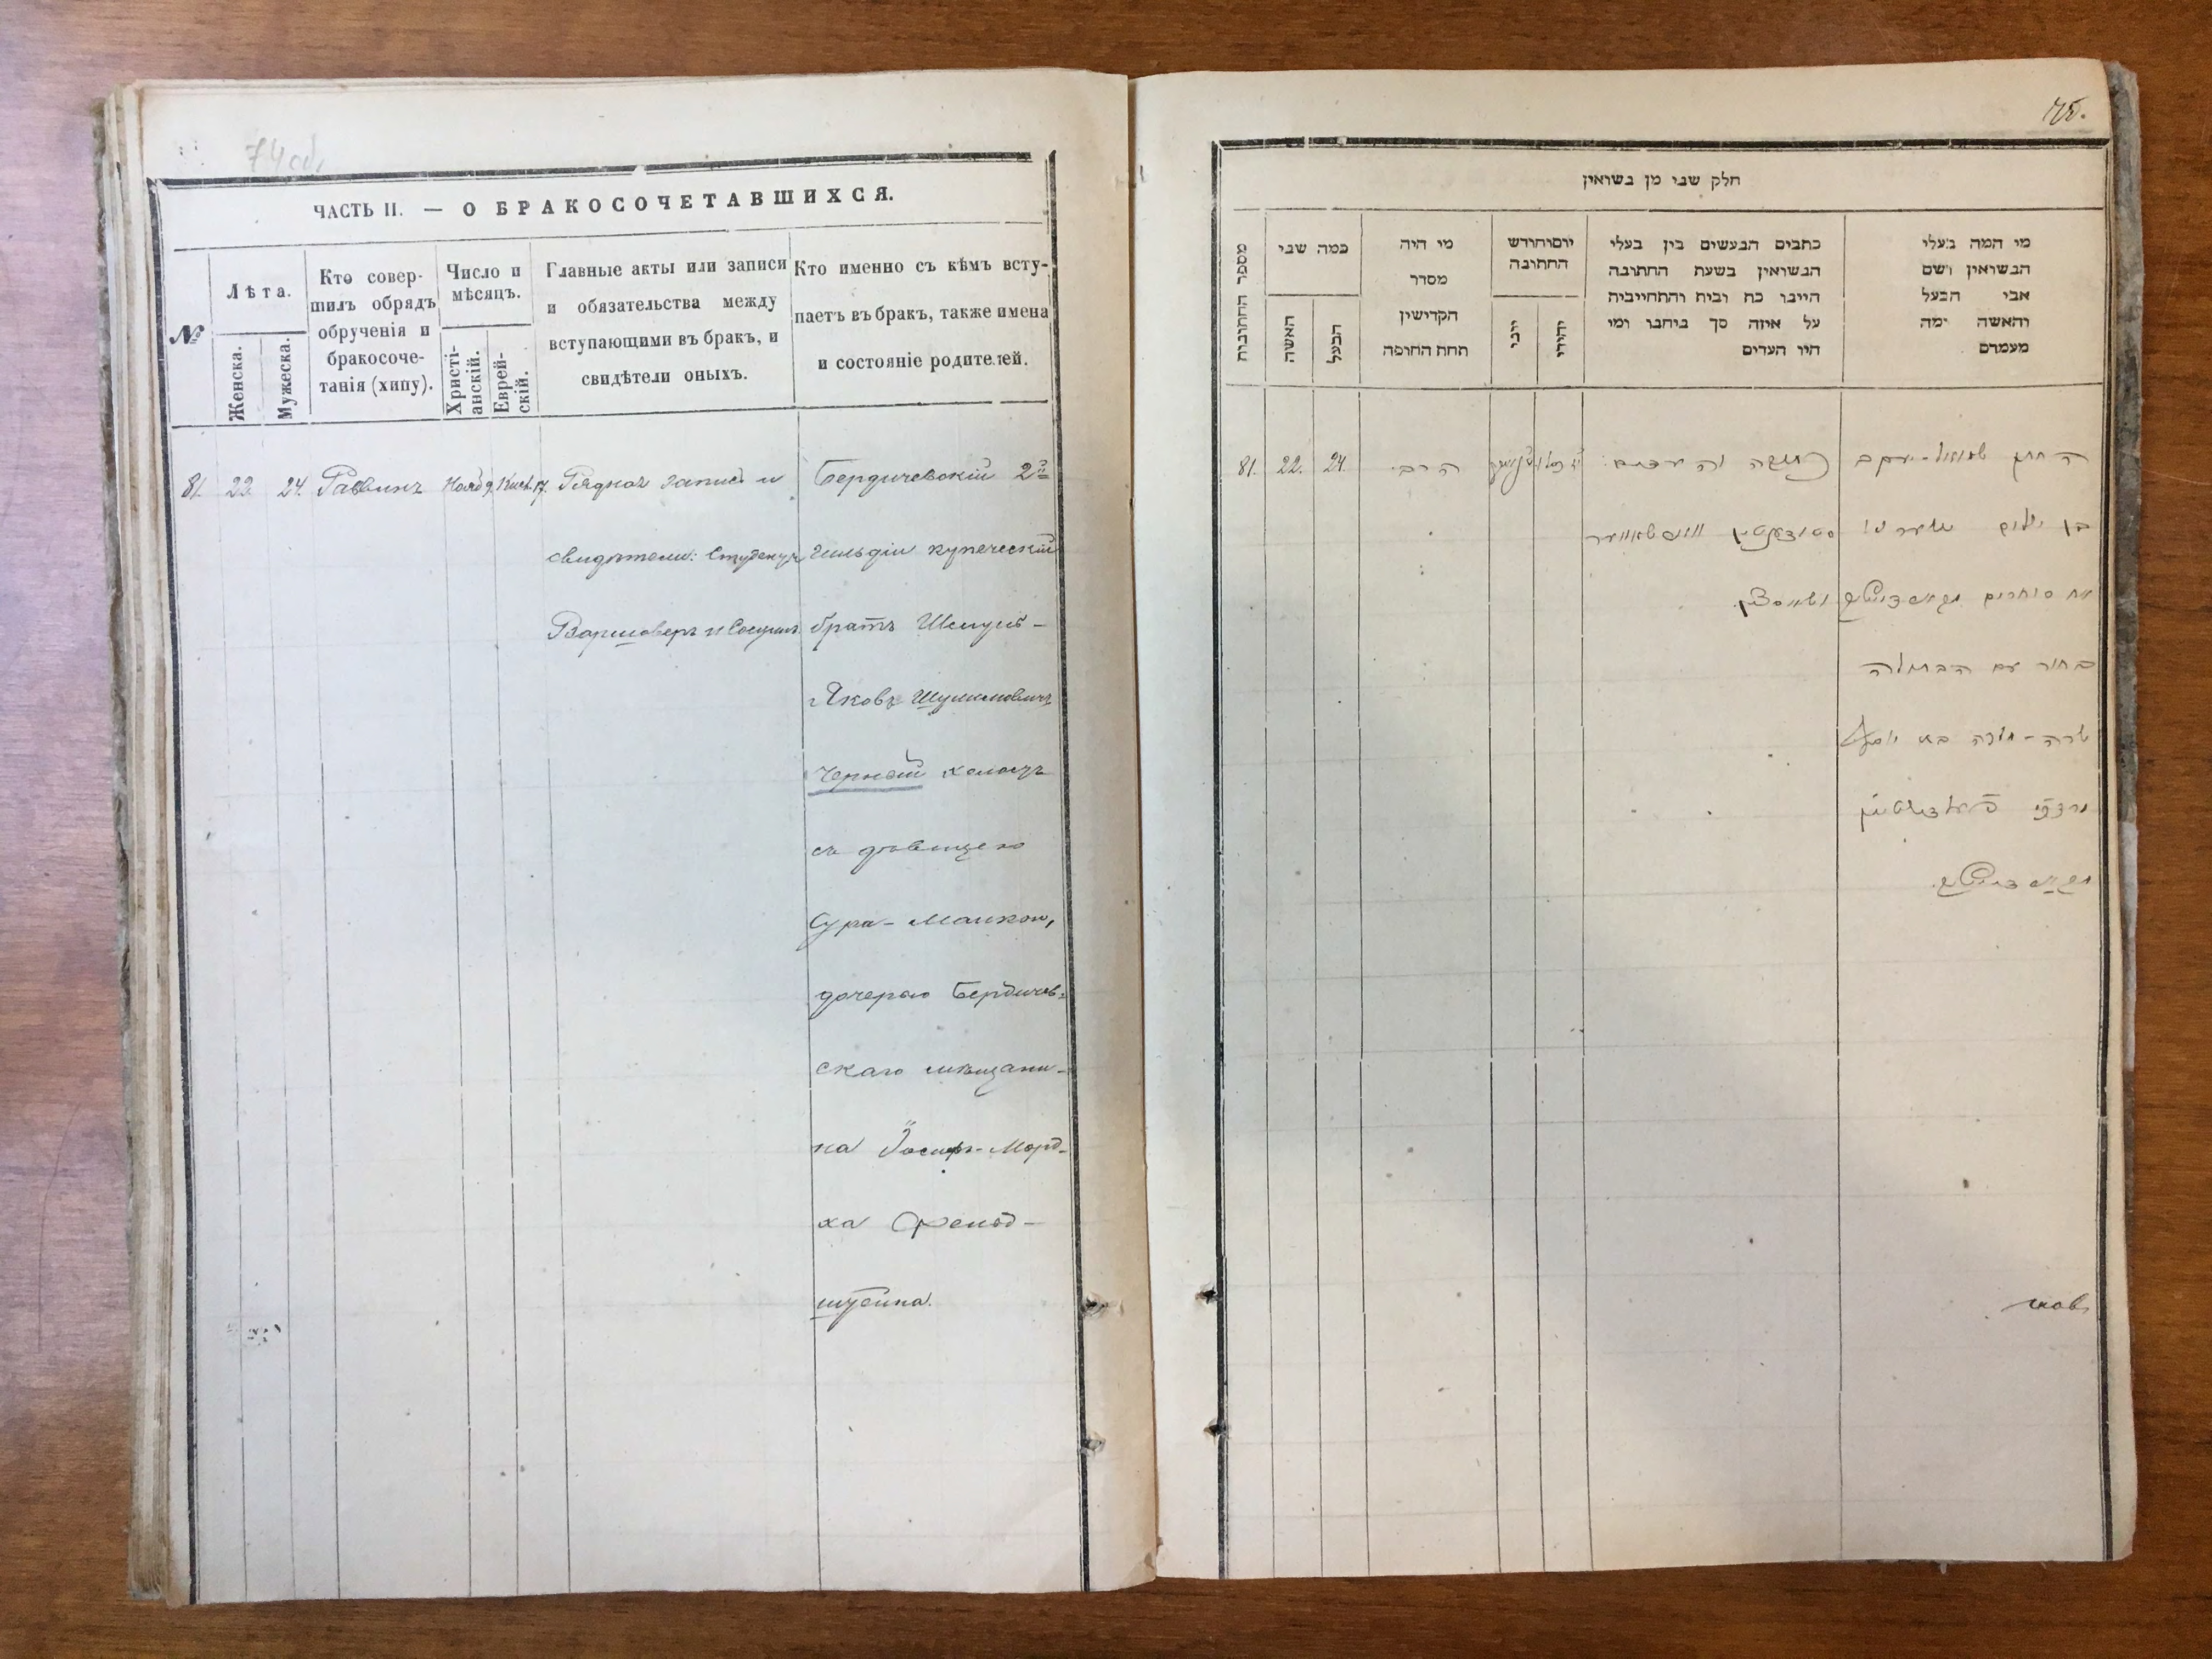 74 об.
ЧАСТЬ II. — О БРАКОСОЧЕТАВШИХСЯ.
№
Лѣта.
Женска.
Мужеска.
Кто совер-
шилъ обрядъ
обрученія и
бракосоче-
танія (хипу).
Число и
мѣсяцъ.
Христі-
анскій.
Еврей-
скій.
Главные акты или записи
и обязательства между
вступающими въ бракъ, и
свидѣтели оныхъ.
Кто именно съ кѣмъ всту-
паетъ въ бракъ, также имена
и состояніе родителей.
81. 22. 24. Раввинъ Нояб 9. Кисл. 17. Рядная запись и
свидѣтели: Студентъ
Варшаверъ и
Бердичевскій 2й
гильдіи купеческій
братъ Шмуль-
Яковъ Шулимовичъ
Черный холостъ
съ дѣвицею
Сура-Малкою,
дочерью Бердичев-
скаго мѣщани-
на Іосифъ-Морд-
ха Фельд-
штейна.
75.
חלק שני מן נשואין
מספר החתונות
כמה שני
האשה
הבעל
מי היה
מסדר
הקדישין
תחת החופה
יוםוחודש
החתונה
יוני
יהודי
כתבים הנעשים בין בעלי
הנשואין בשעת החתונה
היינו כת ובית והתחייביה
על איזה סך ביחנו ומי
היו העדים
מי המה בעלי
הנשואין ושם
אבי הבעל
והאשה ימה
מעמדם
81. 22. 24. הרב.
החתן שמואל-יעקב
בן שלום
אח סוחרים
בחור עם הבתולה
שרה-מלכה בת יוסף
מרדכי פעלדשטיין